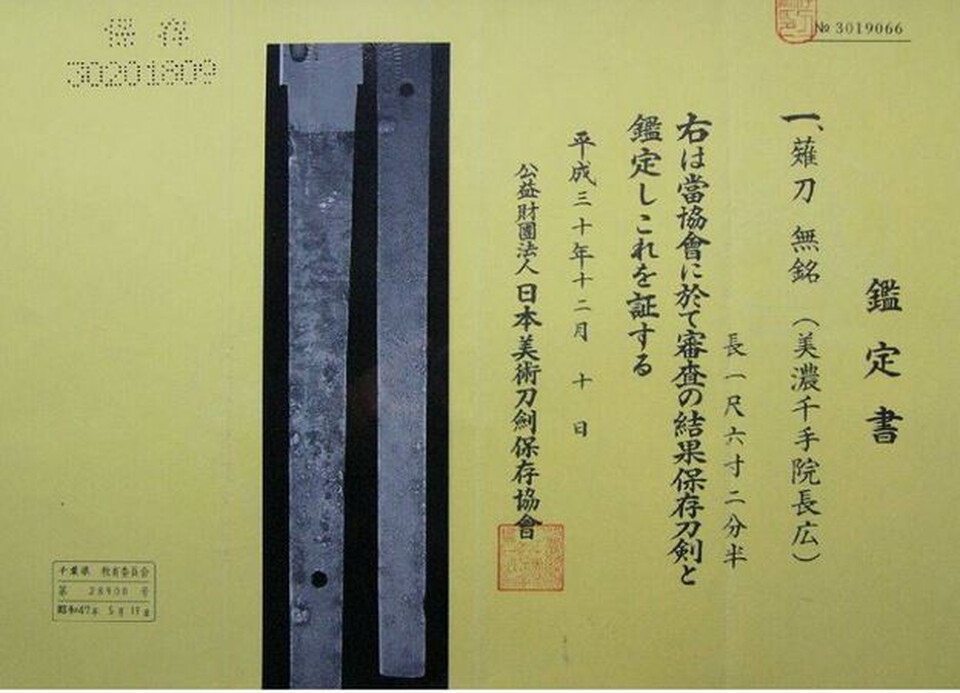 № 3019066
鑑定書
一、薙刀 無銘 (美濃千手院長広)
長一尺六寸二分半
右は當協會に於て審査の結果保存刀剣と
鑑定しこれを証する
平成三十年十二月 十 日
公益財團法人 日本美術刀剣保存協會
保 存
30201809
千葉県 教育委員会
第 28900 号
昭和47年 5月 19日